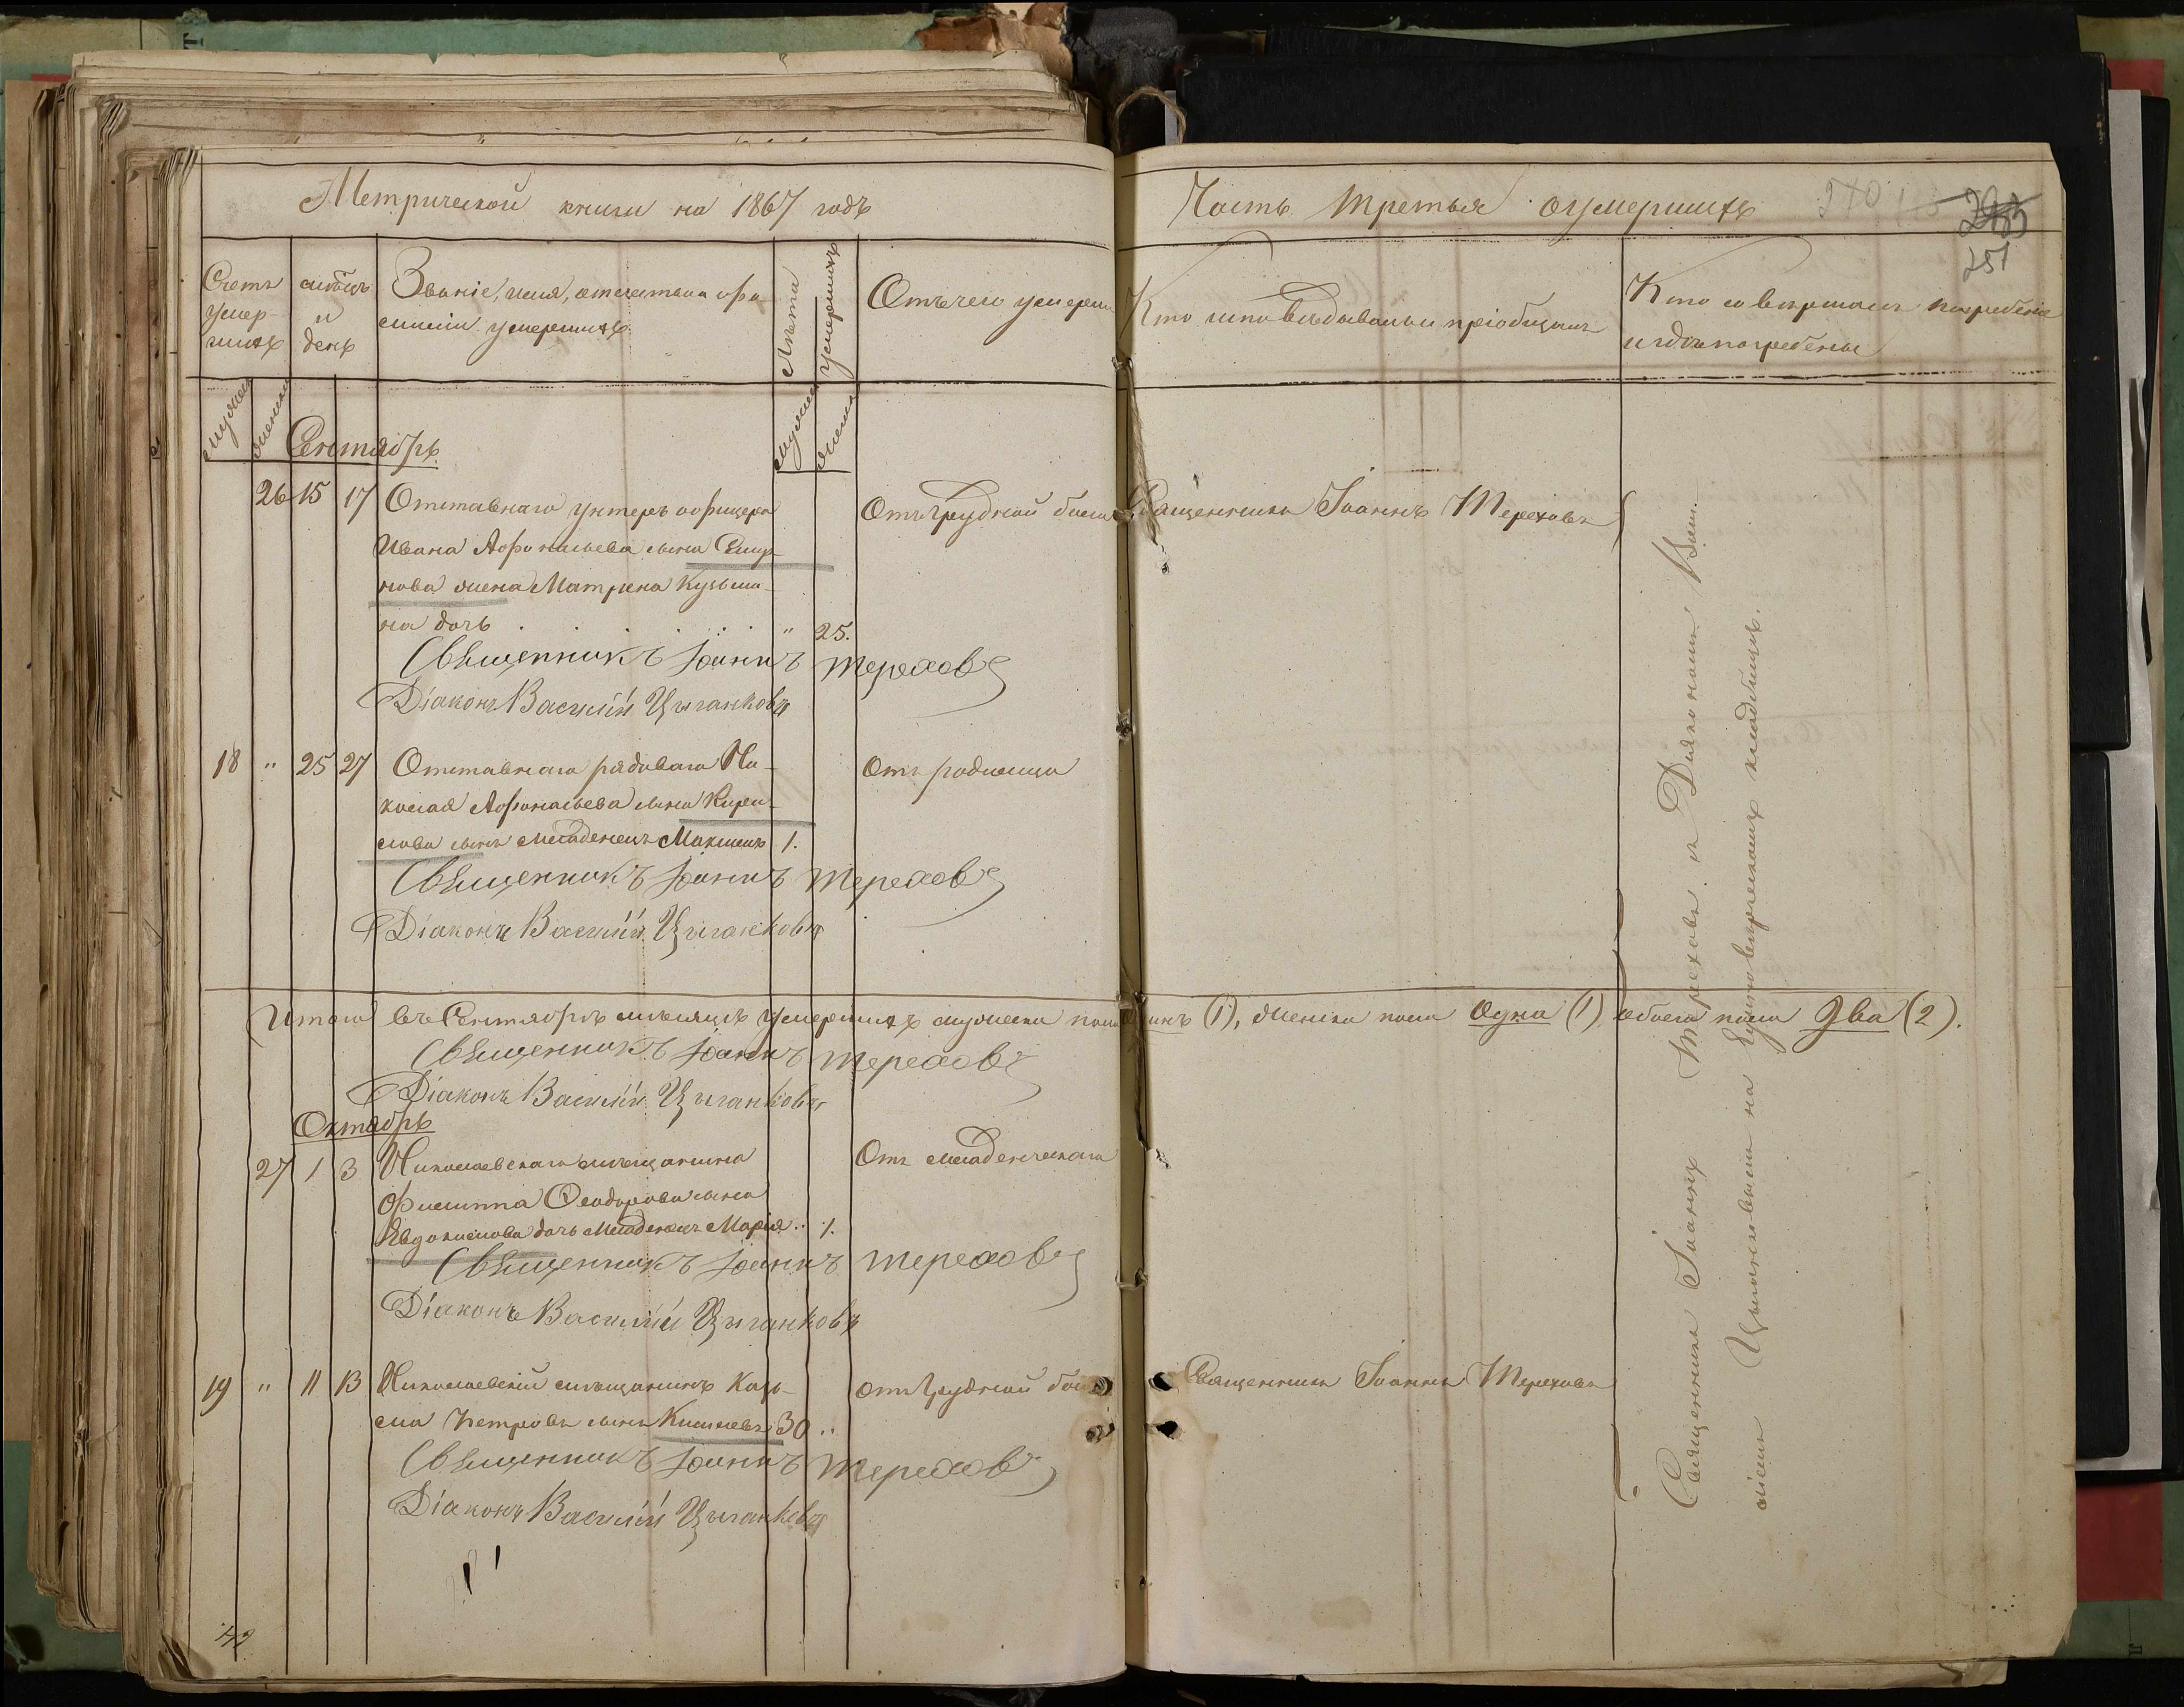 Метрической книги на 1867 годъ
Часть третья о умершихъ
270
251
Счетъ умер-шихъ
мѣсяцъ и день
Званіе, имя, отчество и фа-
милія умершихъ
Лѣта умершихъ
Отъ чего умерли
Кто исповѣдывалъ и пріобщалъ
Кто совершалъ погребеніе
и гдѣ погребены
мужеска
женска
мужеска
женска
Сентябрь
26 15 17 Отставнаго унтеръ офицера
Отъ грудной боли
Священникъ Іоаннъ Тереховъ
Ивана Афонасьева сына Смир-
нова жена Матрена Кузьми-
на дочь " 25.
Священникъ Іоаннъ Тереховъ
Діаконъ Василій Цыганковъ
18 " 25 27 Отставнаго рядоваго Ни-
Отъ родимца
колая Афонасьева сына Кири-
лова сынъ младенецъ Максимъ 1.
Священникъ Іоаннъ Тереховъ
Діаконъ Василій Цыганковъ
Итого въ Сентябрѣ мѣсяцѣ умершихъ мужеска пола одинъ (1), женска пола одна (1) обоего пола два (2).
Священникъ Іоаннъ Тереховъ
Діаконъ Василій Цыганковъ
Октябрь
27 1 3 Николаевскаго мѣщанина
Отъ младенческаго
Филиппа Феодорова сына
Евдокимова дочь младенецъ Марія " 1.
Священникъ Іоаннъ Тереховъ
Діаконъ Василій Цыганковъ
19 " 11 13 Николаевскій мѣщанинъ Кузь-
отъ грудной боли
Священникъ Іоаннъ Тереховъ
ма Петровъ сынъ 30 "
Священникъ Іоаннъ Тереховъ
Діаконъ Василій Цыганковъ
Священникъ Іоаннъ Тереховъ съ Діякономъ Васи-
ліемъ Цыганковымъ на Единовѣрческомъ кладбищѣ.